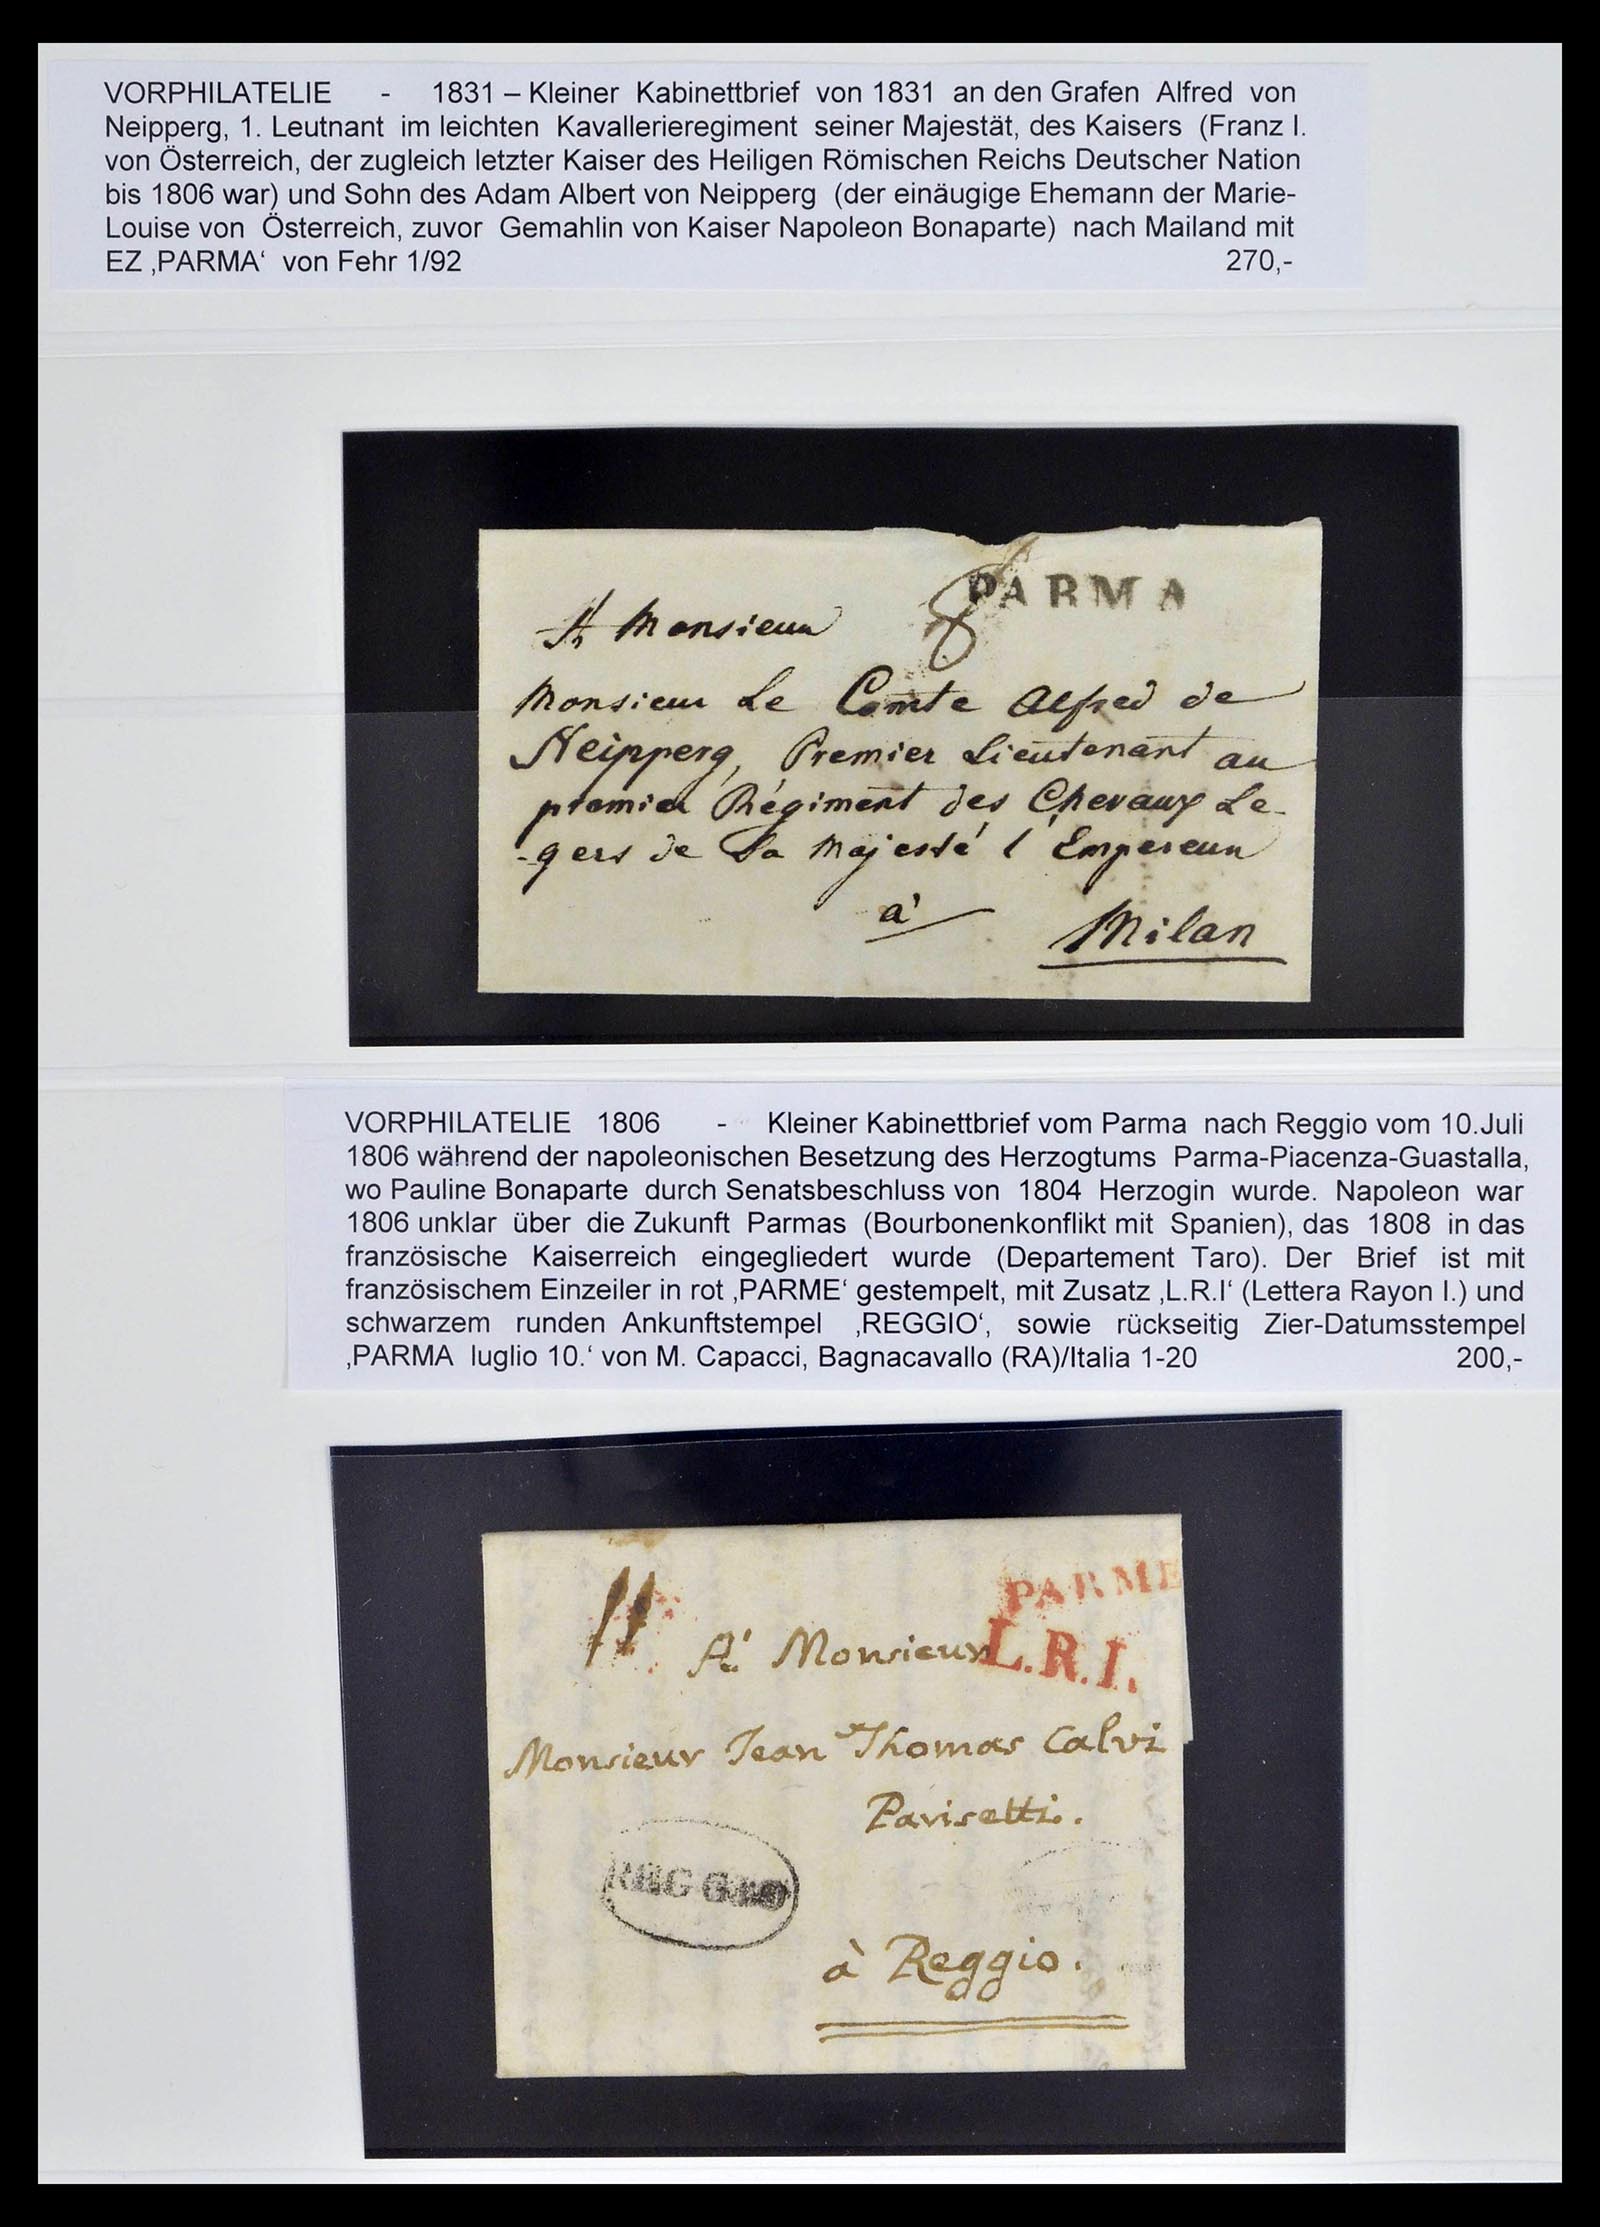 VORPHILATELIE - 1831 – Kleiner Kabinettbrief von 1831 an den Grafen Alfred von
Neipperg, 1. Leutnant im leichten Kavallerieregiment seiner Majestät, des Kaisers (Franz I.
von Österreich, der zugleich letzter Kaiser des Heiligen Römischen Reichs Deutscher Nation
bis 1806 war) und Sohn des Adam Albert von Neipperg (der einäugige Ehemann der Marie-
Louise von Österreich, zuvor Gemahlin von Kaiser Napoleon Bonaparte) nach Mailand mit
EZ ‚PARMA‘ von Fehr 1/92 270,-
PARMA
8
A Monsieur
Monsieur Le Comte Alfred de
Neipperg, Premier Lieutenant au
premier Régiment des Chevaux Le-
-gers de Sa Majesté l'Empereur
à
Milan
VORPHILATELIE 1806 - Kleiner Kabinettbrief vom Parma nach Reggio vom 10.Juli
1806 während der napoleonischen Besetzung des Herzogtums Parma-Piacenza-Guastalla,
wo Pauline Bonaparte durch Senatsbeschluss von 1804 Herzogin wurde. Napoleon war
1806 unklar über die Zukunft Parmas (Bourbonenkonflikt mit Spanien), das 1808 in das
französische Kaiserreich eingegliedert wurde (Departement Taro). Der Brief ist mit
französischem Einzeiler in rot ‚PARME‘ gestempelt, mit Zusatz ‚L.R.I‘ (Lettera Rayon I.) und
schwarzem runden Ankunftstempel ‚REGGIO‘, sowie rückseitig Zier-Datumsstempel
‚PARMA luglio 10.‘ von M. Capacci, Bagnacavallo (RA)/Italia 1-20 200,-
PARME
L.R.I.
A' Monsieur
Monsieur Jean Thomas Calvi
Parisetti.
REGGIO
à Reggio.